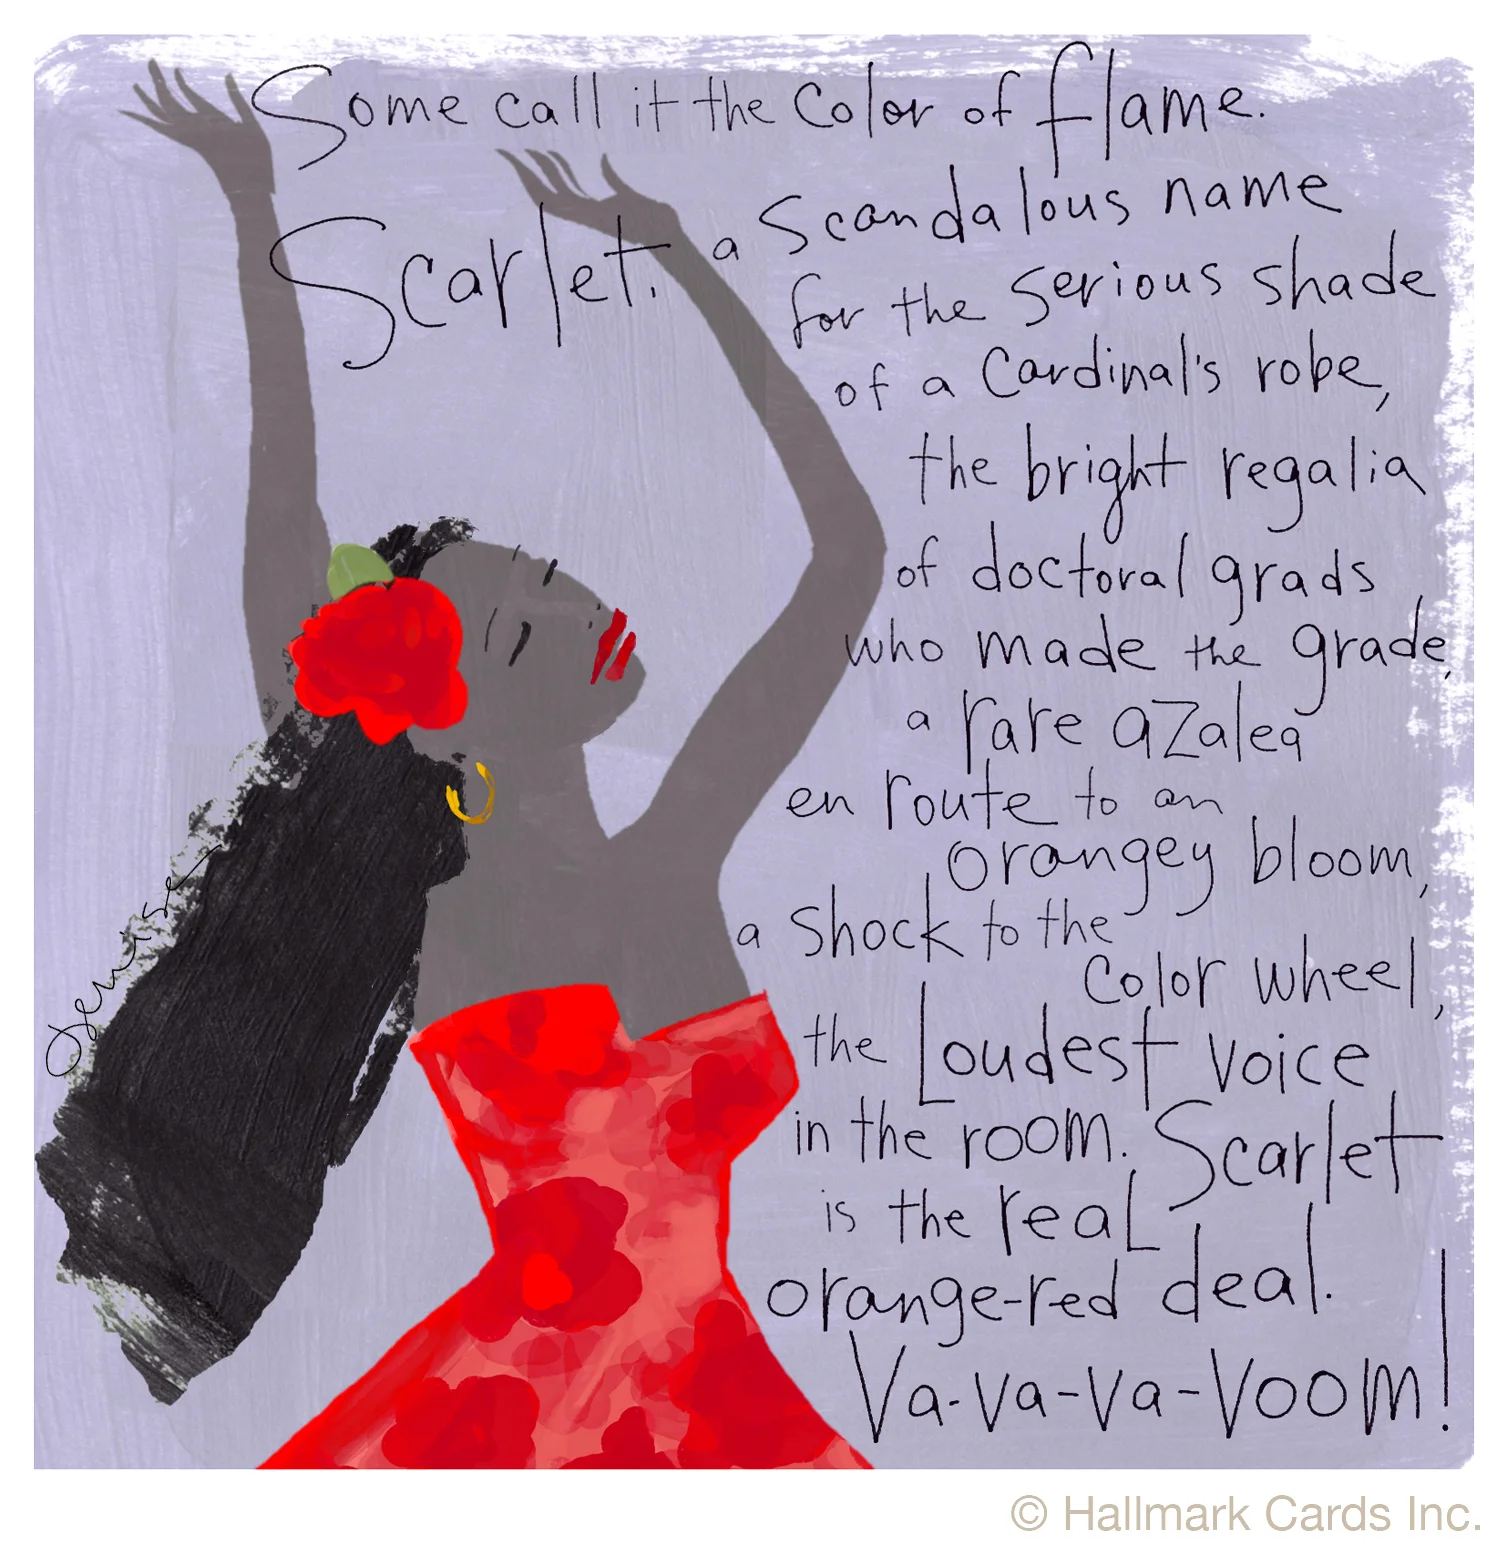 Some call it the color of flame.
Scarlet. a scandalous name
for the serious shade
of a Cardinal's robe,
the bright regalia
of doctoral grads
who made the grade,
a rare azalea
en route to an
orangey bloom,
a shock to the
color wheel,
the Loudest voice
in the room. Scarlet
is the real
orange-red deal.
Va-va-va-voom!
Denise
© Hallmark Cards Inc.